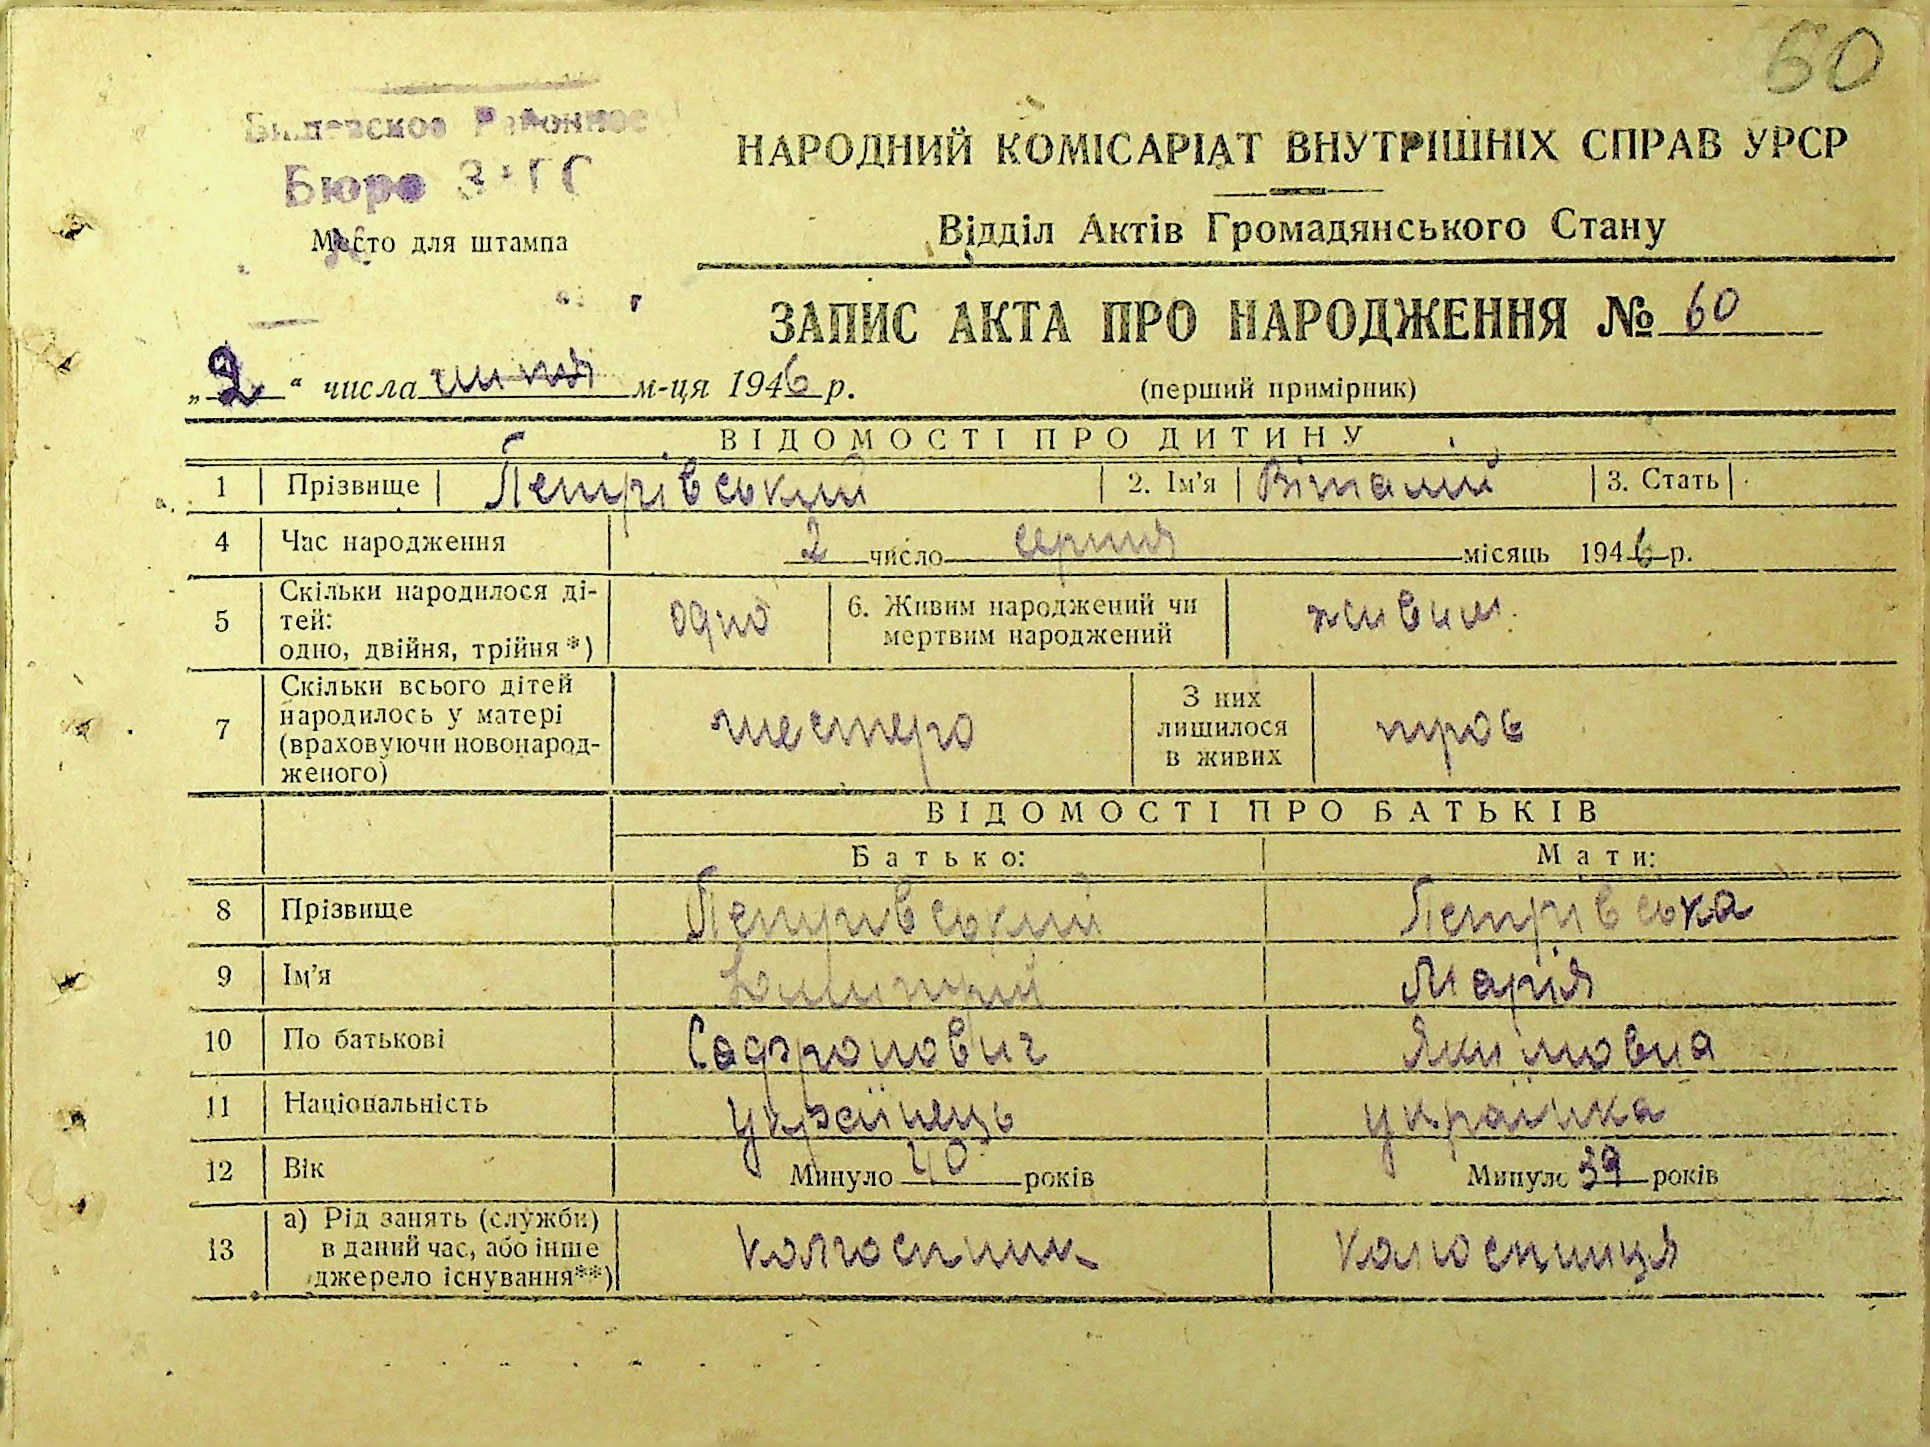 60
Бюро ЗАГС
Место для штампа
НАРОДНИЙ КОМІСАРІАТ ВНУТРІШНІХ СПРАВ УРСР
Відділ Актів Громадянського Стану
ЗАПИС АКТА ПРО НАРОДЖЕННЯ № 60
„2“ числа м-ця 1946 р.
(перший примірник)
ВІДОМОСТІ ПРО ДИТИНУ
1 Прізвище Петрівський 2. Ім'я Віталій 3. Стать
4 Час народження 2 число серпня місяць 1946 р.
5 Скільки народилося ді-
тей:
одно, двійня, трійня*) одно 6. Живим народжений чи
мертвим народжений живим.
7 Скільки всього дітей
народилось у матері
(враховуючи новонарод-
женого) шестеро З них
лишилося
в живих троє
ВІДОМОСТІ ПРО БАТЬКІВ
Батько: Мати:
8 Прізвище Петрівський Петрівська
9 Ім'я Дмитрій Марія
10 По батькові Софронович Якимовна
11 Національність українець українка
12 Вік Минуло 40 років Минуло 39 років
13 а) Рід занять (служби)
в даний час, або інше
джерело існування**) колгоспник колгоспниця